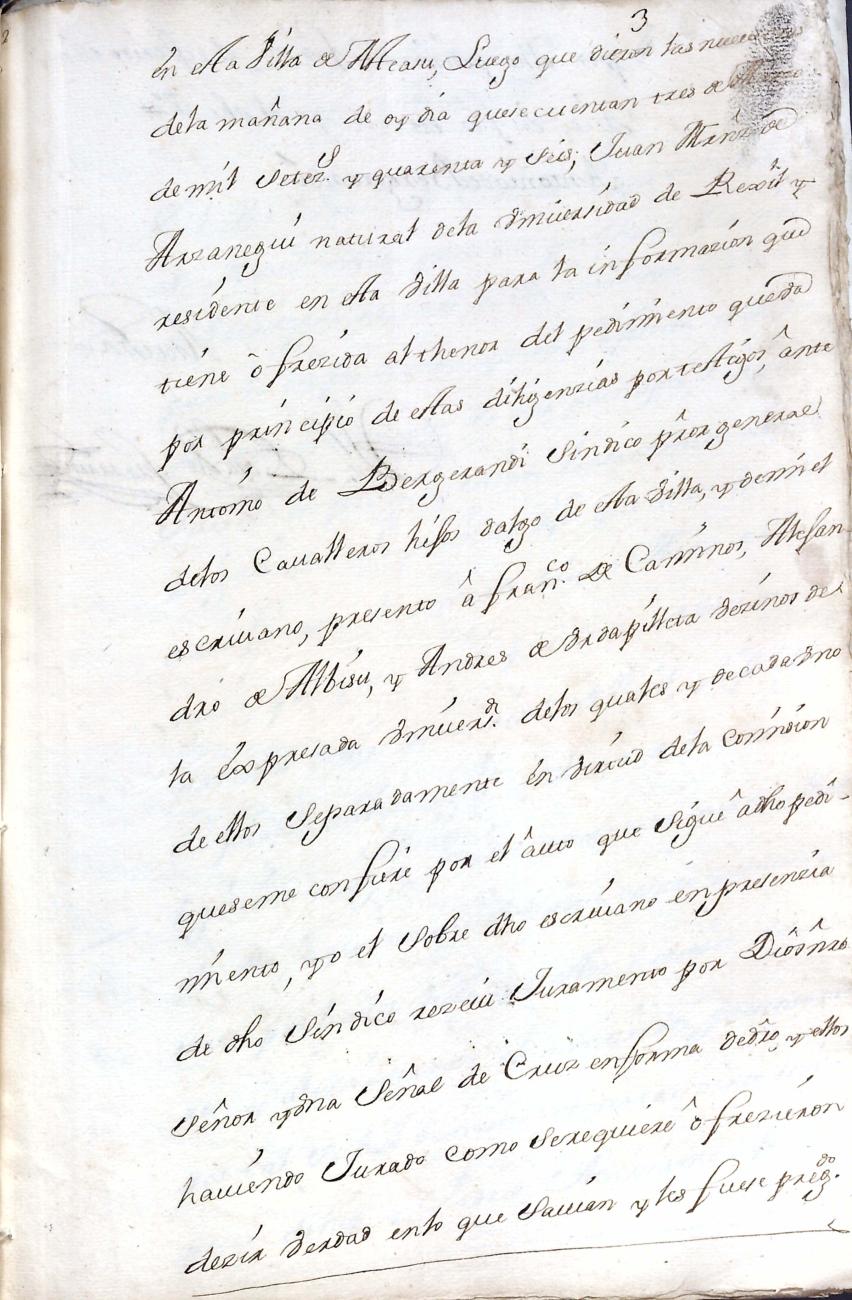 3
en esta Villa de Alcasu, Luego que dieron las nueve
dela mañana de oy dia quese cuentan tres de
de mil Setezs. y quarenta y Seis, Juan Arnz de
Arzanegui natural dela Vniversidad de Rexil y
residente en esta Villa para la informazion que
tiene ofrezida al thenor del pedimiento queda
por principio de estas diligenzias por testigos, ante
Antonio de Bergerandi Sindico prôr general
delos Cavalleros hijos dalgo de esta Villa, y de mi el
escrivano, presento â franco. de Caminos, Alejan
dro de Albisu, y Andres de Vrdapilleta vezinos de
la êxpresada Vniversd. delos quales y de cada vno
de ellos Separadamente en virtud dela Comision
queseme confiere por el âuto que Sigue âdho pedi-
miento, yo el Sobre dho escrivano en presenzia
de dho Sindico rezeiu Juramento por Diôs nrô
Señor y vna Señal de Cruz enforma dedrô, y ellos
haviendo Jurado como Serequiere ôfrezieron
dezir verdad enlo que Savian y les fuese pregdo.